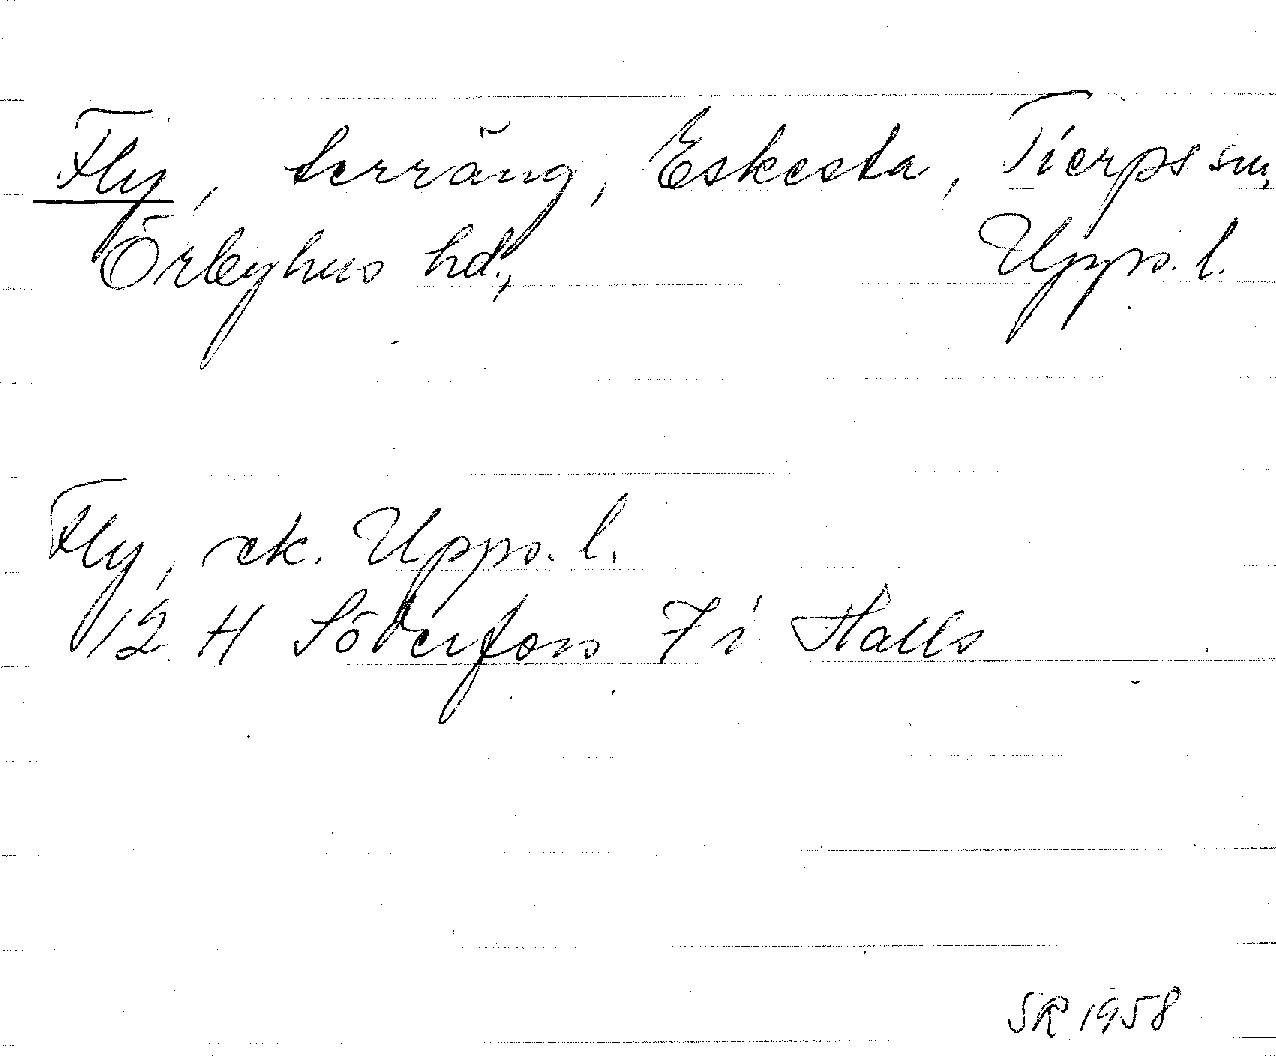 Fly, terräng, Eskesta, Tierps sn,
Örbyhus hd., Upps. l.
Fly, ek. Upps. l.
12 H Söderfors 7 i Halls
SR 1958